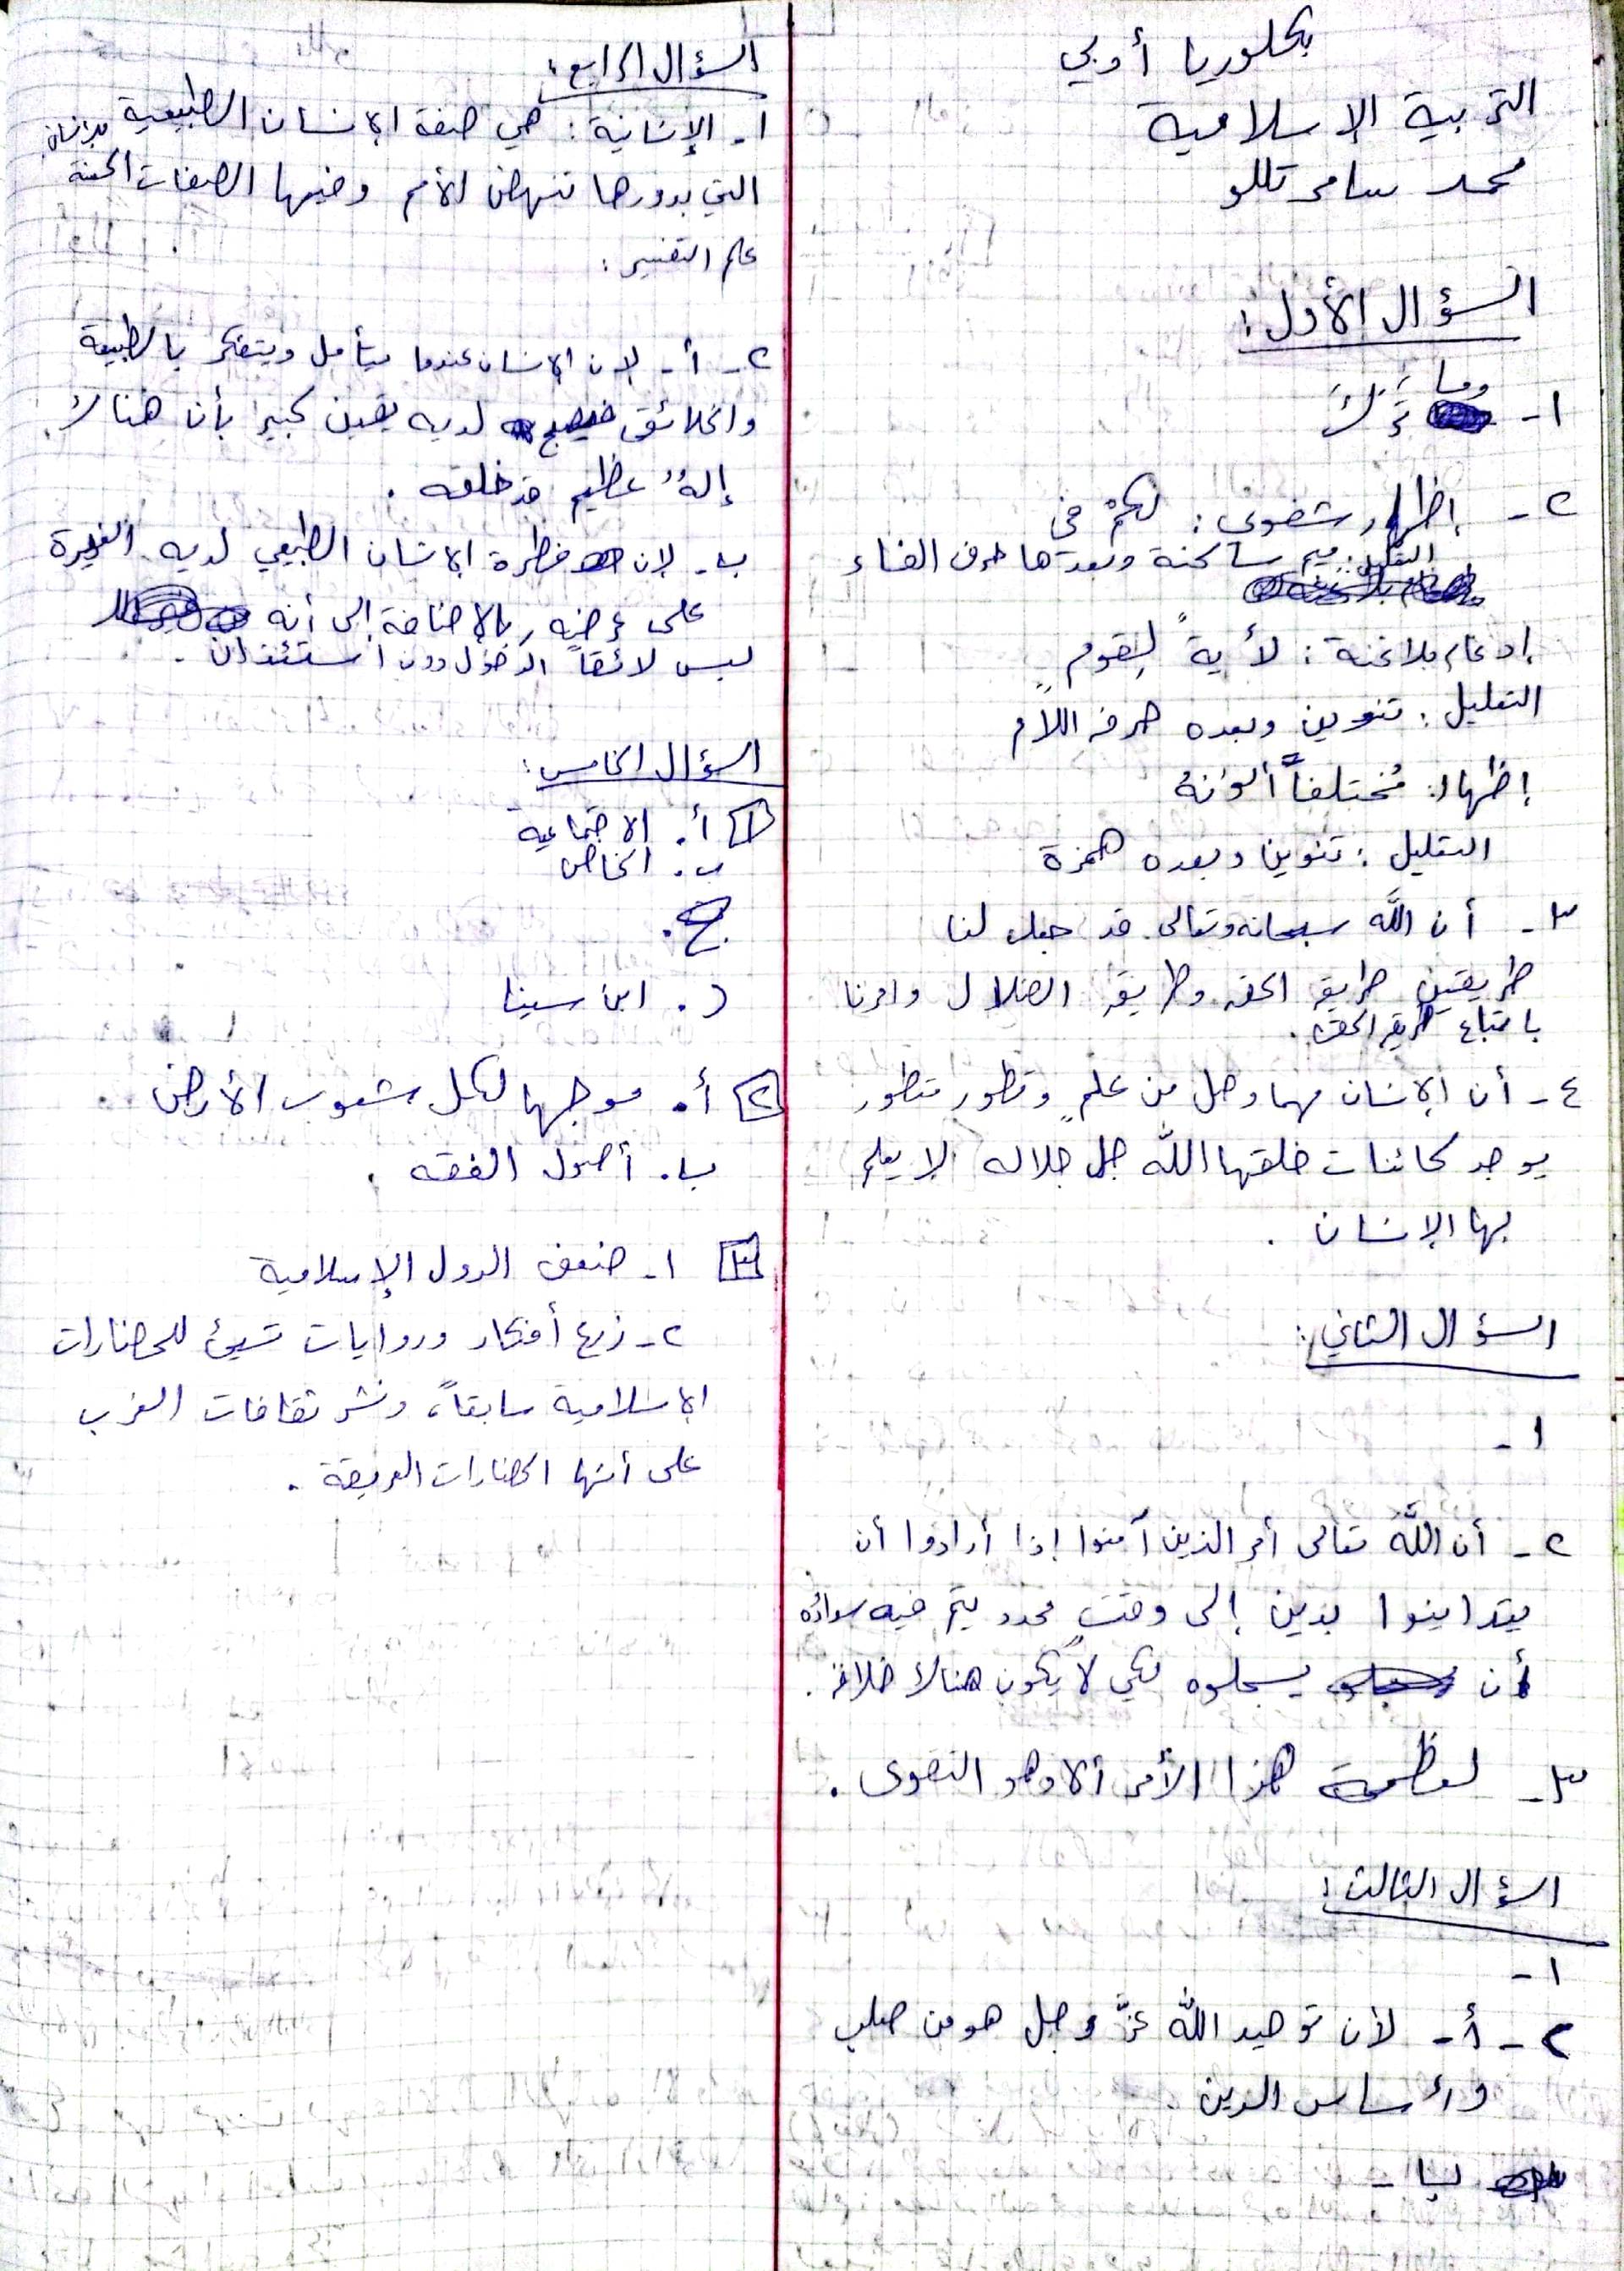 بكلوريا أدبي
التربية الإسلامية
محمد سامر تللو
السؤال الأول :
١- وما تَرَكَ
٢- إظهار شفوي : لكمْ في
التعليل : ميم ساكنة وبعدها حرف الفاء
إدغام بلا غنة : لأية لِقومٍ
التعليل : تنوين وبعده حرف اللام
إظهار : مُختلفاً ألونهُ
التعليل : تنوين وبعده همزة
٣- أن اللّه سبحانه وتعالى قد جعل لنا
طريقين طريق الحق وطريق الضلال وامرنا
باتباع طريق الحق .
٤- أن الانسان مهما وصل من علمٍ وتطور متطور
يوجد كائنات خلقها اللّه جل جلاله لا يعلم
بها الإنسان .
السؤال الثاني :
١-
٢- أن اللّه تعالى أمر الذين آمنوا إذا أرادوا أن
يتداينوا بدين إلى وقتٍ محدد يتم فيه سداده
أن يسجلوه لكي لا يكون هنالا خلاف .
٣- لعظمة هذا الأمر ألا وهو التقوى .
السؤال الثالث :
١-
٢- أ- لأن توحيد اللّه عزَّ وجل هو من صلب
وأساس الدين .
ب-
السؤال الرابع :
١- الإنسانية : هي صفة الانسان الطبيعية للإنسان
التي بدورها تنهض الأمم وفيها الصفات الحسنة
علم التفسير :
٢- أ- لان الانسان عندما يتأمل ويتفكر بالطبيعة
والخلائق فيصبح لديه يقين كبير بأن هناك
إلهٌ عظيم قد خلقه .
ب- لإن فطرة الانسان الطبيعي لديه الغيرة
على عرضه , بالإضافة إلى أنه
ليس لائقاً الدخول دون استئذان .
السؤال الخامس :
١ أ. الاجتماعية
ب. الخاص
ج.
د. ابن سينا
٢ أ. موجها لكل شعوب الأرض
ب. أصول الفقه .
٣ ١- ضعف الدول الإسلامية
٢- زرع أفكار وروايات تسيئ للحضارات
الاسلامية سابقاً، ونشر ثقافات الغرب
على أنها الحضارات العريقة .